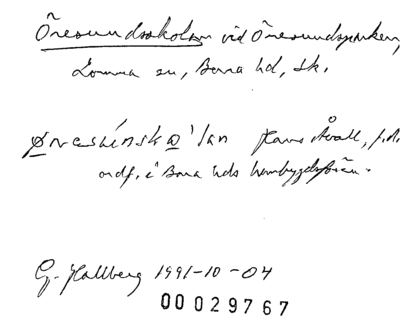 Öresundsskolan vid Öresundsparken,
Lomma sn, Bara hd, Sk.
Øresínskọ'lan Hans Åvall, f.d.
ordf. i Bara hds hembygdsfören.
G. Hallberg 1991-10-04
00029767